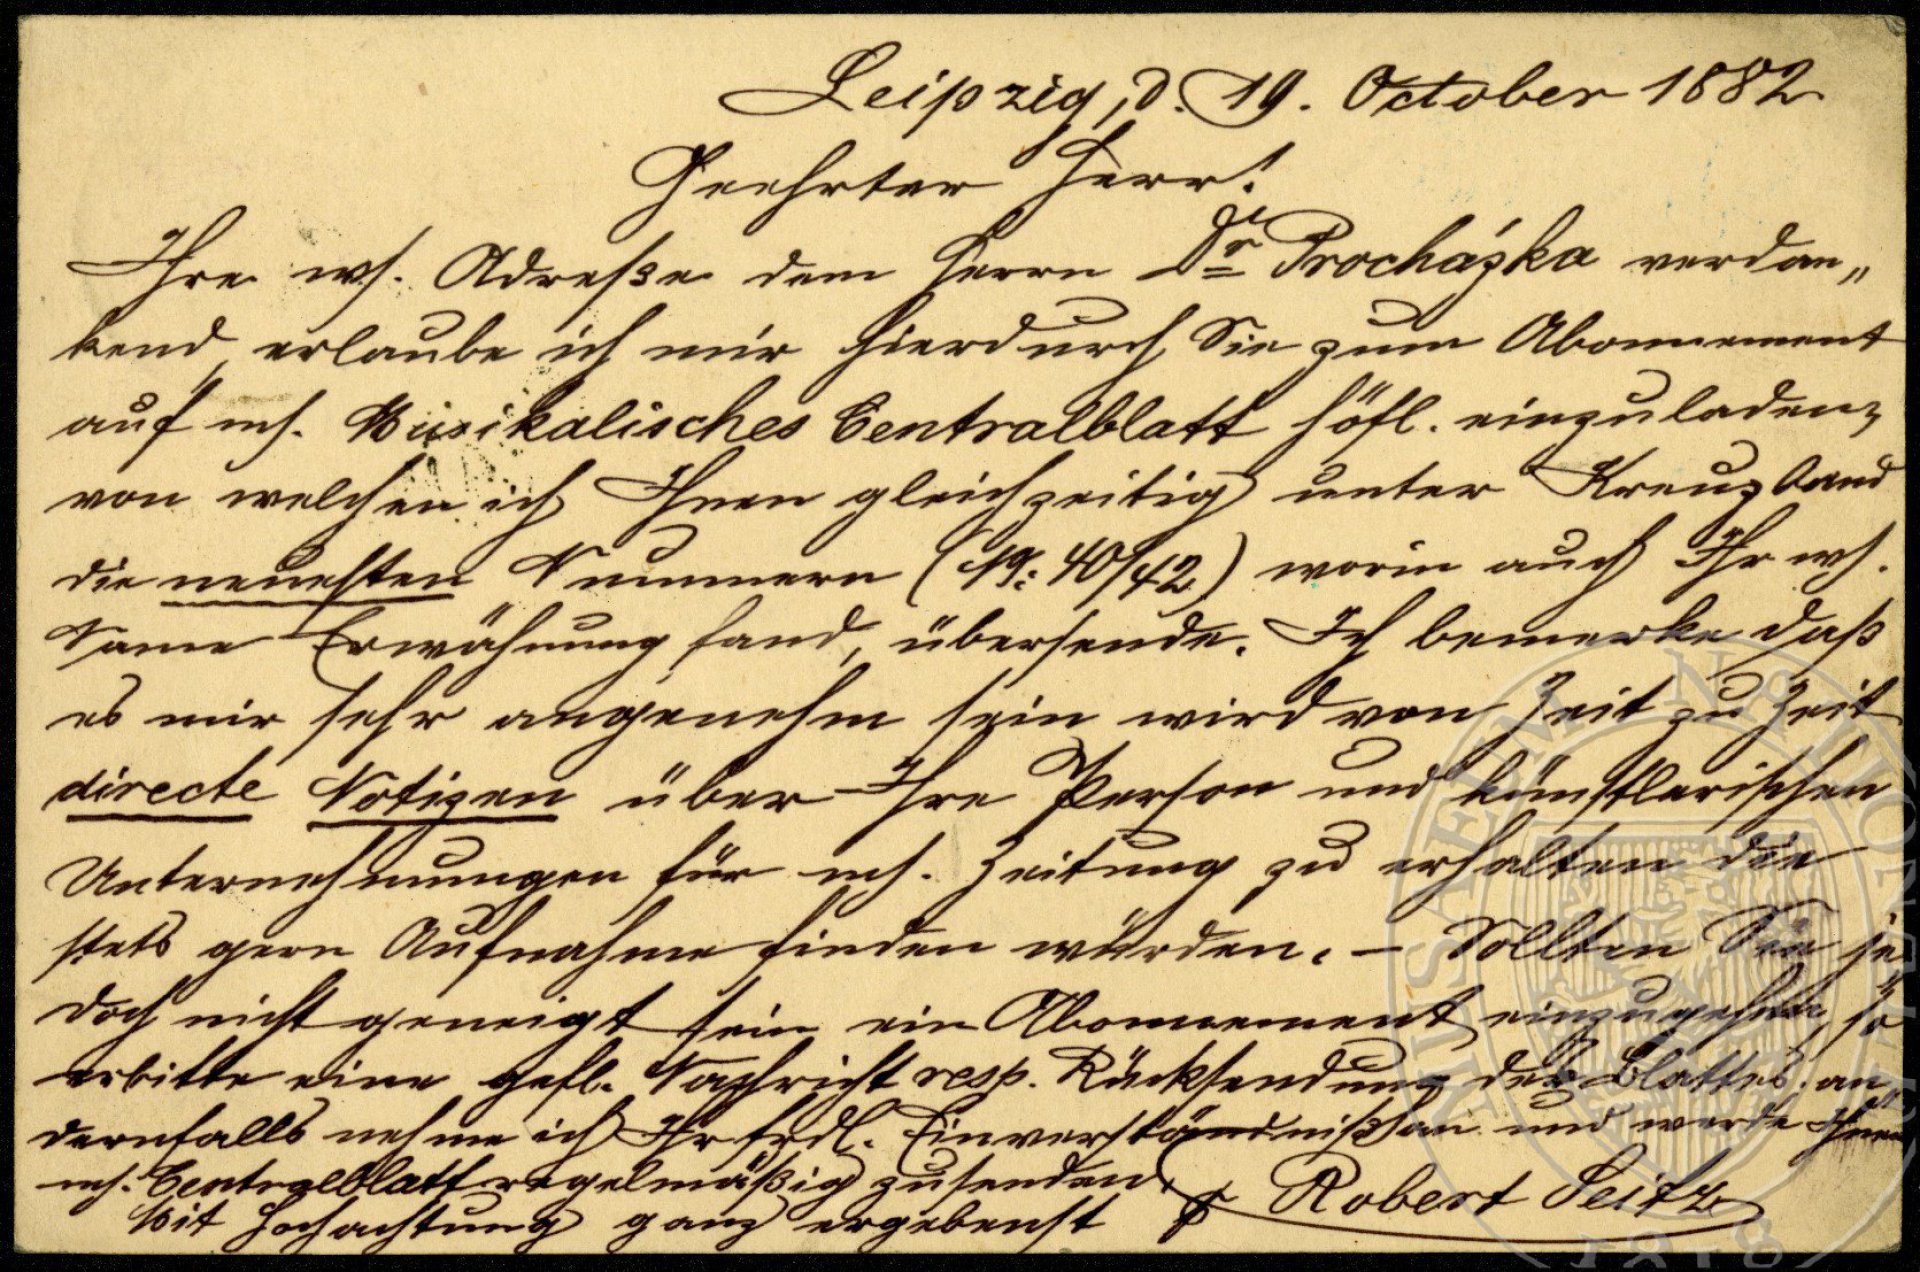 Leipzig, d. 19. October 1882.
Geehrter Herr!
Ihre wh. Adreße dem Herrn Dr Procházka verdan„
kend, erlaube ich mir hierdurch Sie zum Abonnement
auf mh. Musikalisches Centralblatt höfl. einzuladen,
von welchen ich Ihnen gleichzeitig unter Kreuzband
die neuesten Nummern (No: 40/42) worin auch Ihr wh.
Name Erwähnung fand, übersende. Ich bemerke daß
es mir sehr angenehm sein wird von Zeit zu Zeit
directe Notizen über Ihre Person und künstlerischen
Unternehmungen für mh. Zeitung zu erhalten die
stets gern Aufnahme finden würden. – Sollten Sie je
doch nicht geneigt sein ein Abonnement einzugehen, so
erbitte eine gefl. Nachricht resp. Rücksendung des Blattes, an
dernfalls nehme ich Ihr frdl. Einverständniß an und werde Ihnen
mh. Centralblatt regelmäßig zusenden.
Mit Hochachtung ganz ergebenst Robert Seitz
MUSAEUM NATIONALE
1818